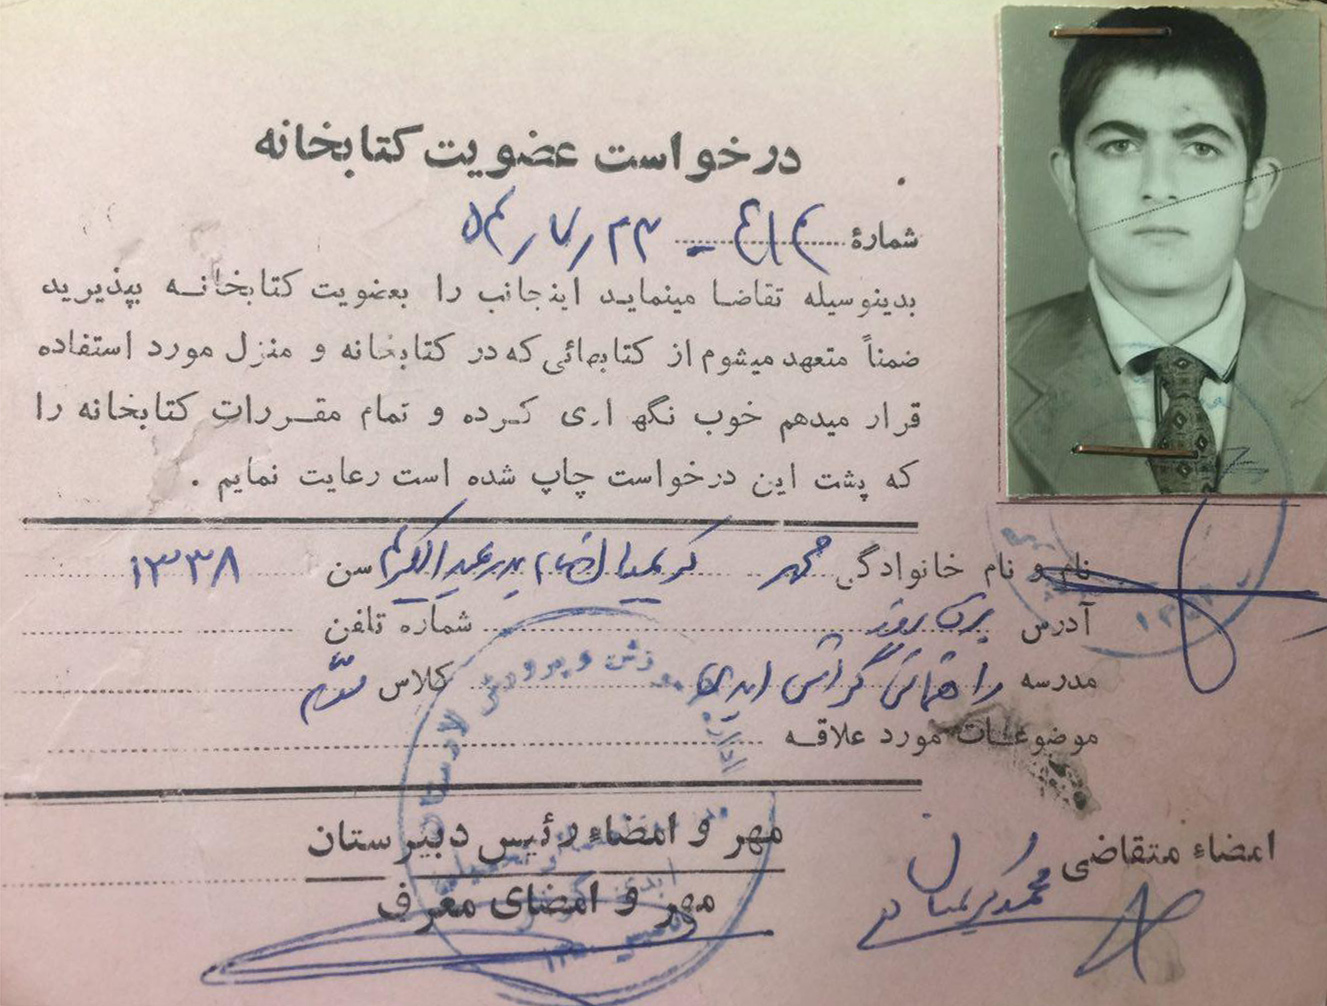 درخواست عضویت کتابخانه
شمارهٔ ۴۱۴ - ۵۴/۷/۲۳
بدینوسیله تقاضا مینماید اینجانب را بعضویت کتابخانه بپذیرید
ضمناً متعهد میشوم از کتابهائی که در کتابخانه و منزل مورد استفاده
قرار میدهم خوب نگهداری کرده و تمام مقررات کتابخانه را
که پشت این درخواست چاپ شده است رعایت نمایم .
نام و نام خانوادگی محمد کریمیان نام پدر عبدالکریم سن ۱۳۳۸
آدرس برق روز شماره تلفن
مدرسه راهنمائی گراش کلاس سوم
موضوعات مورد علاقه
مهر و امضاء رئیس دبیرستان
امضاء متقاضی محمد کریمیان
مهر و امضای معرف
اداره آموزش و پرورش لارستان